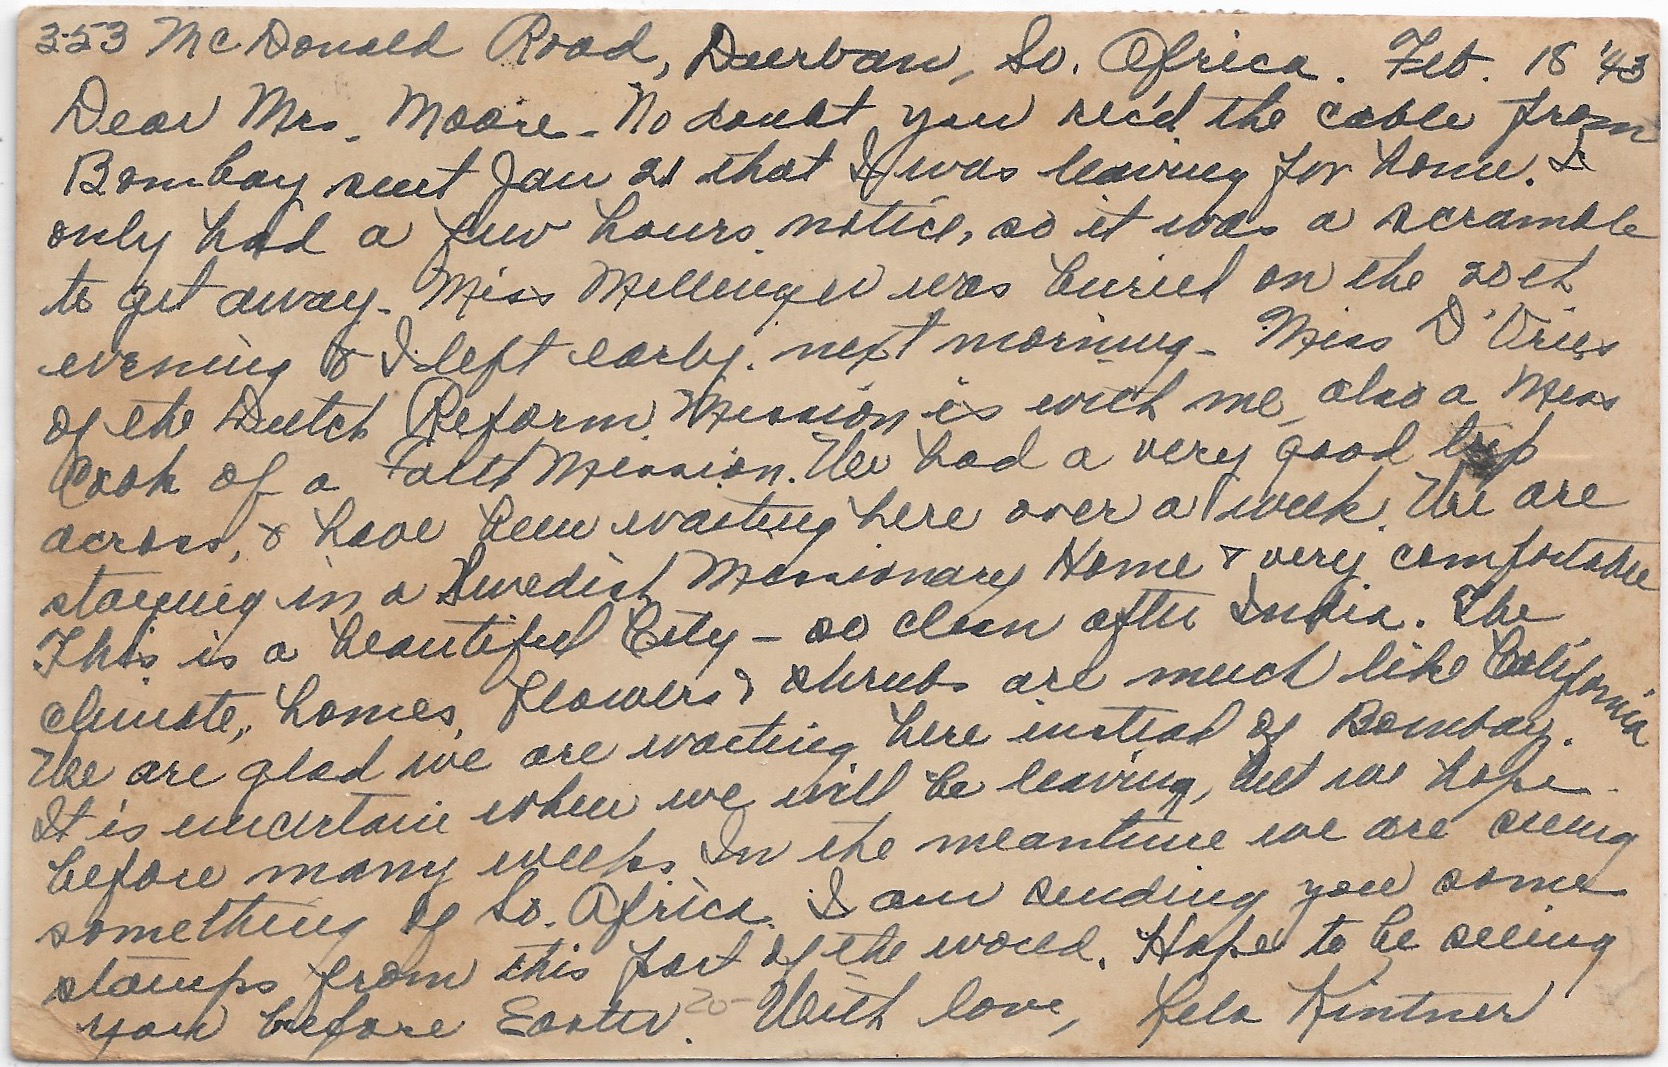 353 McDonald Road, Durban, So. Africa. Feb. 18 '43
Dear Mrs. Moore - No doubt you rec'd the cable from
Bombay sent Jan 21 that I was leaving for home. I
only had a few hours notice, so it was a scramble
to get away. Miss Mellinger was buried on the 20th
evening & I left early next morning. Miss D'Vries
of the Dutch Reform Mission is with me, also a Miss
Cook of a Faith Mission. We had a very good trip
across, & have been waiting here over a week. We are
staying in a Swedish Missionary Home & very comfortable
This is a beautiful City - so clean after India. The
climate, homes, flowers & shrubs are much like California
We are glad we are waiting here instead of Bombay.
It is uncertain when we will be leaving, but we hope
before many weeks. In the meantime we are seeing
something of So. Africa. I am sending you some
stamps from this part of the world. Hope to be seeing
you before Easter. 20- With love, Kintner